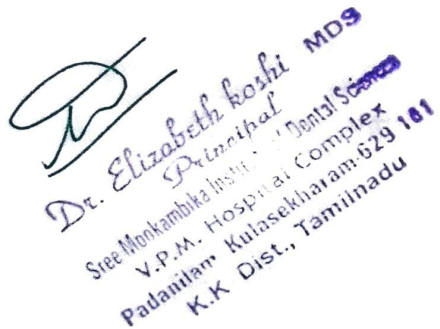 Dr. Elizabeth Koshi MDS
Principal
Sree Mookambika Dental Sciences
V.P.M. Hospital Complex
Padanilam Kulasekharam-629 161
K.K Dist., Tamilnadu